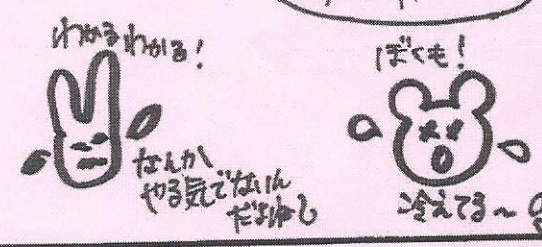 わかるわかる!
なんか
やる気でないん
だよねし
ぼくも!
冷えてる~